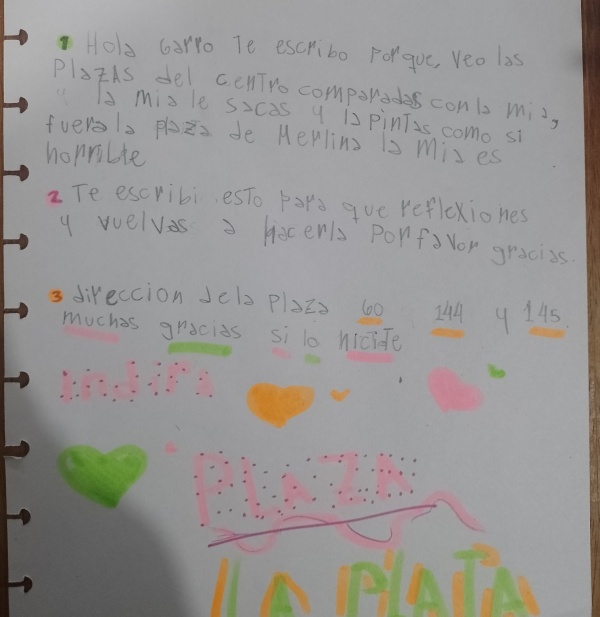 1 Hola Garro Te escribo Porque, veo las
PlaZAS del CENTRO comparadas con la mia,
y la mia le sacas y la PinTas como si
fuera la plaza de Merlina la mia es
horrible
2 Te escribi esto para que reflexiones
y vuelvas a Hacerla Por favor gracias.
3 direccion dela Plaza 60 144 y 145.
muchas gracias si lo hiciste
Indira
PLAZA
LA PLATA